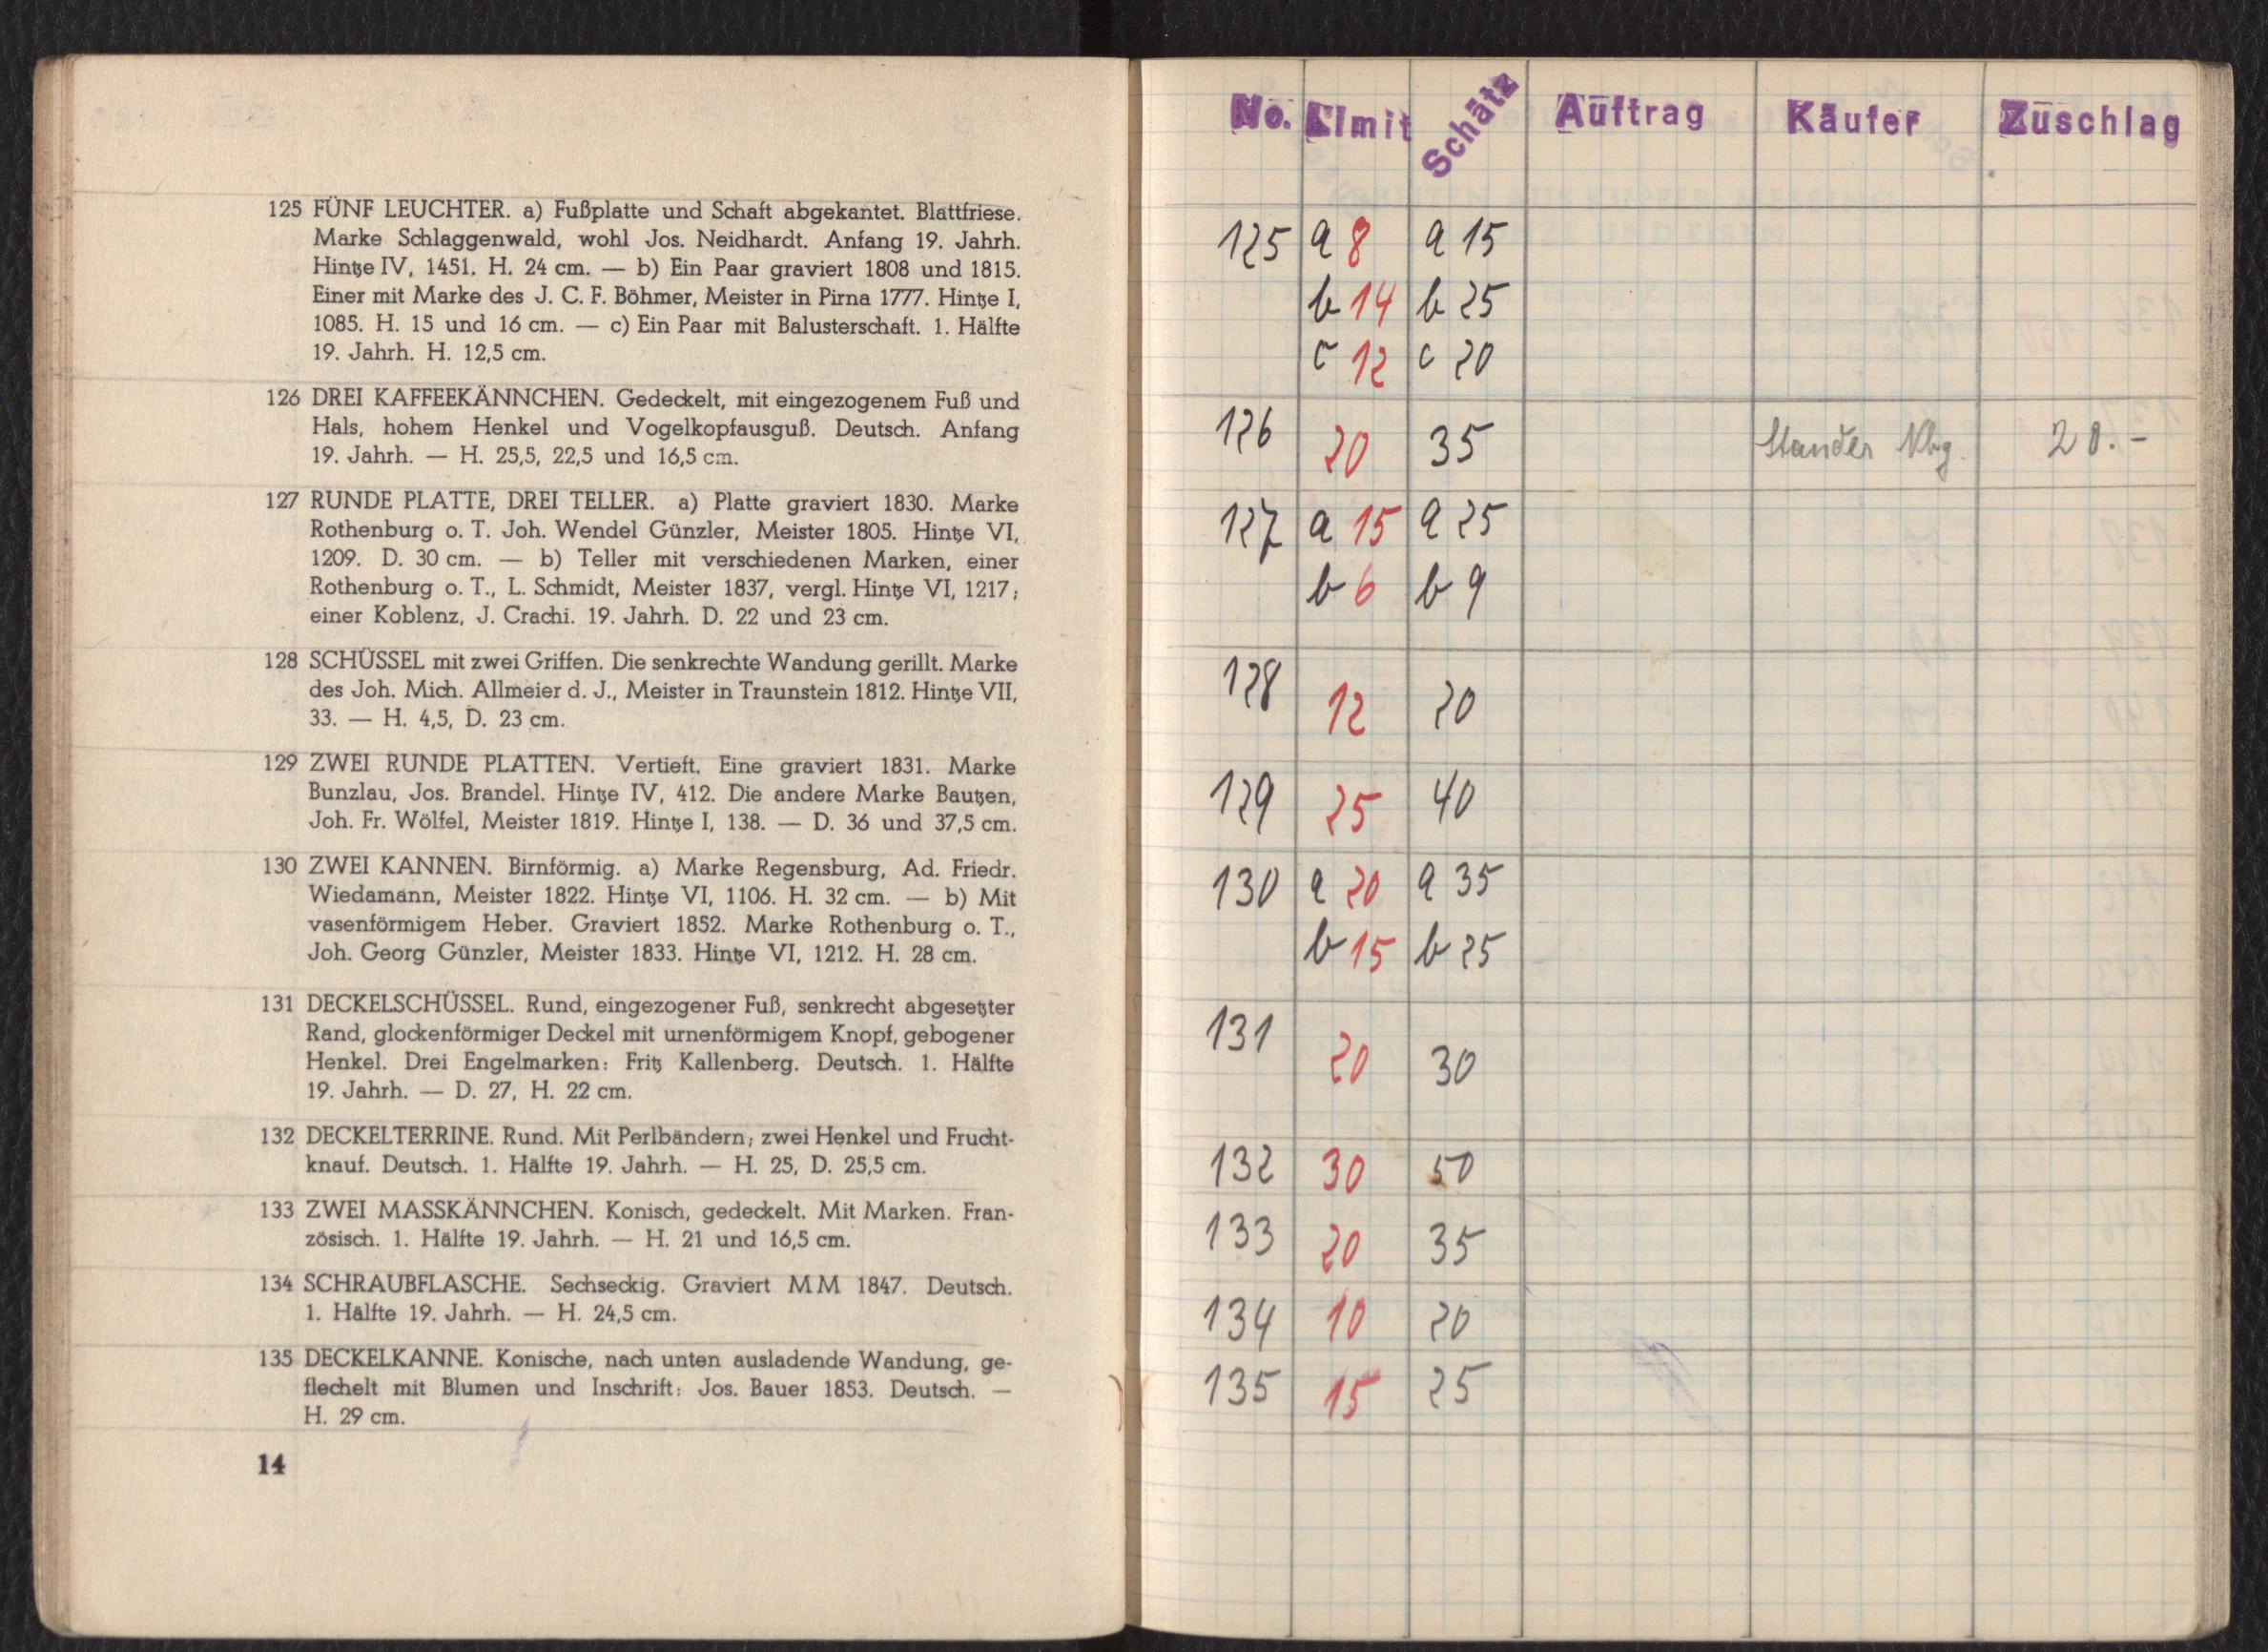 125 FÜNF LEUCHTER. a) Fußplatte und Schaft abgekantet. Blattfriese.
Marke Schlaggenwald, wohl Jos. Neidhardt. Anfang 19. Jahrh.
Hintze IV, 1451. H. 24 cm. — b) Ein Paar graviert 1808 und 1815.
Einer mit Marke des J. C. F. Böhmer, Meister in Pirna 1777. Hintze I,
1085. H. 15 und 16 cm. — c) Ein Paar mit Balusterschaft. 1. Hälfte
19. Jahrh. H. 12,5 cm.
126 DREI KAFFEEKÄNNCHEN. Gedeckelt, mit eingezogenem Fuß und
Hals, hohem Henkel und Vogelkopfausguß. Deutsch. Anfang
19. Jahrh. — H. 25,5, 22,5 und 16,5 cm.
127 RUNDE PLATTE, DREI TELLER. a) Platte graviert 1830. Marke
Rothenburg o. T. Joh. Wendel Günzler, Meister 1805. Hintze VI,
1209. D. 30 cm. — b) Teller mit verschiedenen Marken, einer
Rothenburg o. T., L. Schmidt, Meister 1837, vergl. Hintze VI, 1217;
einer Koblenz, J. Crachi. 19. Jahrh. D. 22 und 23 cm.
128 SCHÜSSEL mit zwei Griffen. Die senkrechte Wandung gerillt. Marke
des Joh. Mich. Allmeier d. J., Meister in Traunstein 1812. Hintze VII,
33. — H. 4,5, D. 23 cm.
129 ZWEI RUNDE PLATTEN. Vertieft. Eine graviert 1831. Marke
Bunzlau, Jos. Brandel. Hintze IV, 412. Die andere Marke Bautzen,
Joh. Fr. Wölfel, Meister 1819. Hintze I, 138. — D. 36 und 37,5 cm.
130 ZWEI KANNEN. Birnförmig. a) Marke Regensburg, Ad. Friedr.
Wiedamann, Meister 1822. Hintze VI, 1106. H. 32 cm. — b) Mit
vasenförmigem Heber. Graviert 1852. Marke Rothenburg o. T.,
Joh. Georg Günzler, Meister 1833. Hintze VI, 1212. H. 28 cm.
131 DECKELSCHÜSSEL. Rund, eingezogener Fuß, senkrecht abgesetzter
Rand, glockenförmiger Deckel mit urnenförmigem Knopf, gebogener
Henkel. Drei Engelmarken: Fritz Kallenberg. Deutsch. 1. Hälfte
19. Jahrh. — D. 27, H. 22 cm.
132 DECKELTERRINE. Rund. Mit Perlbändern; zwei Henkel und Frucht-
knauf. Deutsch. 1. Hälfte 19. Jahrh. — H. 25, D. 25,5 cm.
133 ZWEI MASSKÄNNCHEN. Konisch, gedeckelt. Mit Marken. Fran-
zösisch. 1. Hälfte 19. Jahrh. — H. 21 und 16,5 cm.
134 SCHRAUBFLASCHE. Sechseckig. Graviert MM 1847. Deutsch.
1. Hälfte 19. Jahrh. — H. 24,5 cm.
135 DECKELKANNE. Konische, nach unten ausladende Wandung, ge-
flechelt mit Blumen und Inschrift: Jos. Bauer 1853. Deutsch. —
H. 29 cm.
14
No. Limit Schätz Auftrag Käufer Zuschlag
125 a 8 a 15
b 14 b 25
c 12 c 20
126 20 35 Nbg. 20.-
127 a 15 a 25
b 6 b 9
128 12 20
129 25 40
130 a 20 a 35
b 15 b 25
131 20 30
132 30 50
133 20 35
134 10 20
135 15 25